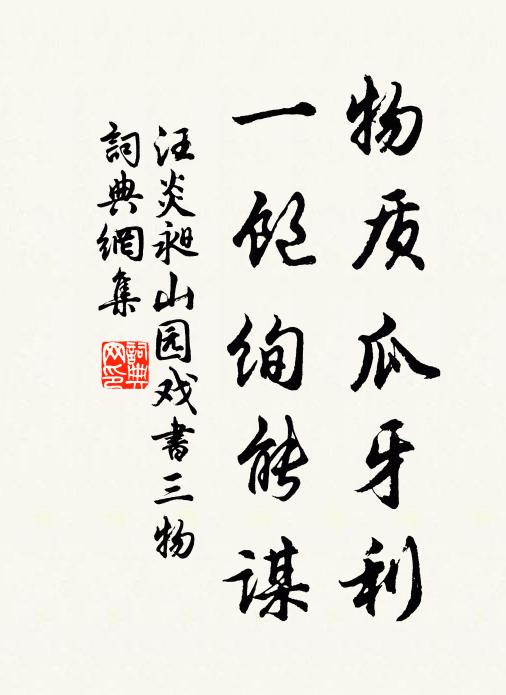 物质瓜牙利
一饱绚能谋
汪炎昶山园戏书三物
詞典網集
詞典网印